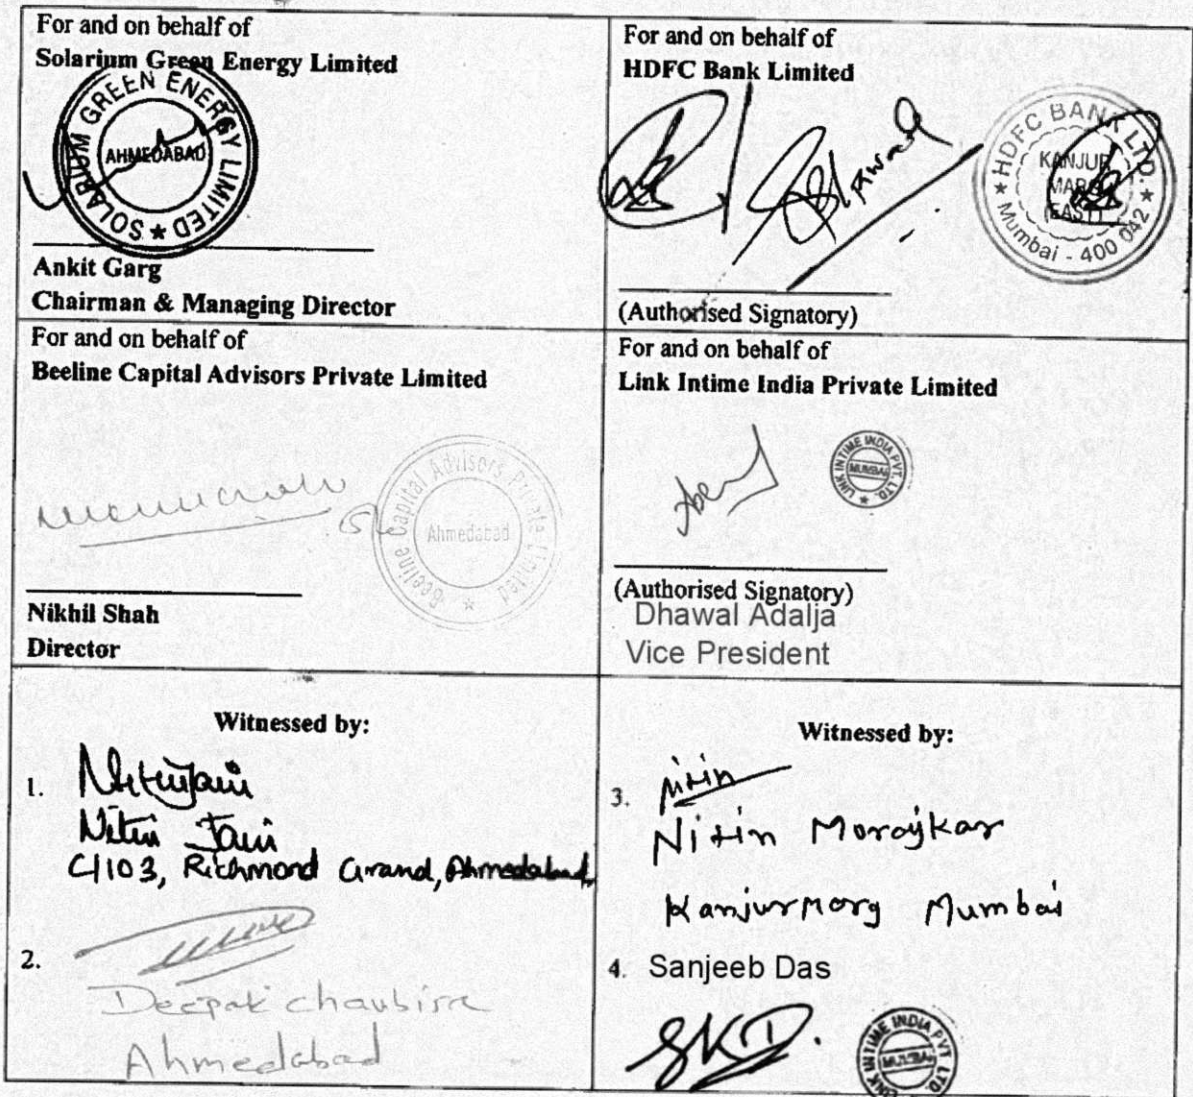 For and on behalf of
Solarium Green Energy Limited
SOLARIUM GREEN ENERGY LIMITED ★
AHMEDABAD
Ankit Garg
Chairman & Managing Director
For and on behalf of
HDFC Bank Limited
★ HDFC BANK LTD. ★
KANJUR
MARG
(EAST)
Mumbai - 400 042
(Authorised Signatory)
For and on behalf of
Beeline Capital Advisors Private Limited
Beeline Capital Advisors Private Limited ★
Ahmedabad
Nikhil Shah
Director
For and on behalf of
Link Intime India Private Limited
LINK INTIME INDIA PVT. LTD. ★
MUMBAI
(Authorised Signatory)
Dhawal Adalja
Vice President
Witnessed by:
1. Nitin Jain
Nitin Jain
C/103, Richmond Grand, Ahmedabad.
2.
Deepak chaubisa
Ahmedabad
Witnessed by:
3. Nitin
Nitin Morajkar
Kanjurmarg Mumbai
4. Sanjeeb Das
SKD.
LINK INTIME INDIA PVT LTD.
MUMBAI